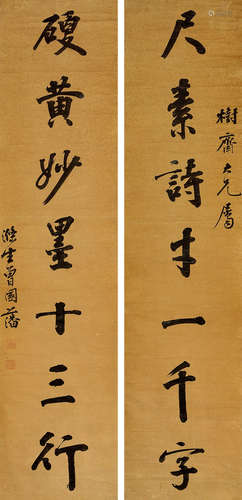 樹齋大兄屬
尺素詩才一千字
硬黃妙墨十三行
滌生曾國藩